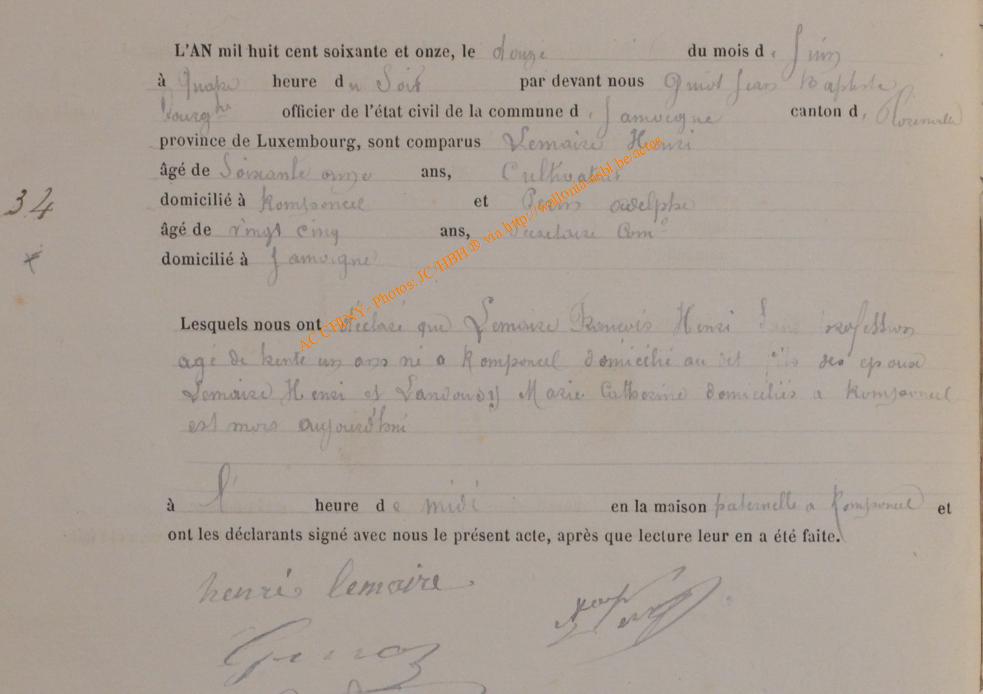 L'AN mil huit cent soixante et onze, le douze du mois de Juin
à quatre heure du Soir par devant nous Guiot Jean Baptiste
Bourgtre officier de l'état civil de la commune de Jamoigne canton de Florenville
province de Luxembourg, sont comparus Lemaire Henri
âgé de Soixante onze ans, Cultivateur
domicilié à Romponcel et Perin Adelphe
34
âgé de vingt cinq ans, Secretaire Com
domicilié à Jamoigne
Lesquels nous ont déclaré que Lemaire François Henri Sans profession
agé de trente un ans né a Romponcel domicilié au dit fils des epoux
Lemaire Henri et Marie Catherine domiciliés a Romponcel
est mort aujourd'hui
à l' heure de midi en la maison paternelle a Romponcel et
ont les déclarants signé avec nous le présent acte, après que lecture leur en a été faite.
henri lemaire
AC CHINY- Photos: JC HBH ® via http://wallonia-asbl.be/actes